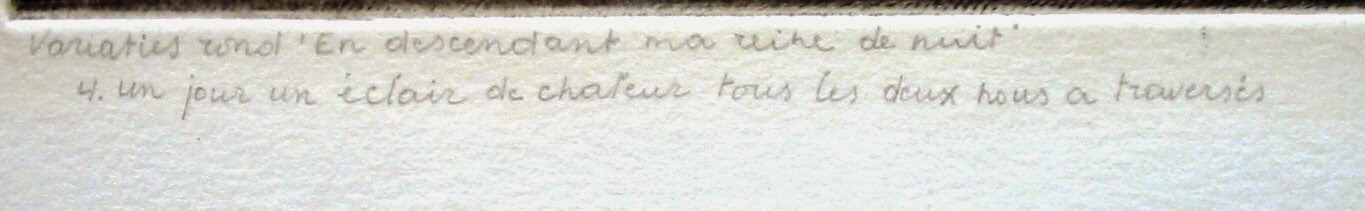 Variaties rond 'En descendant ma reine de nuit'
4. un jour un éclair de chaleur tous les deux nous a traversés